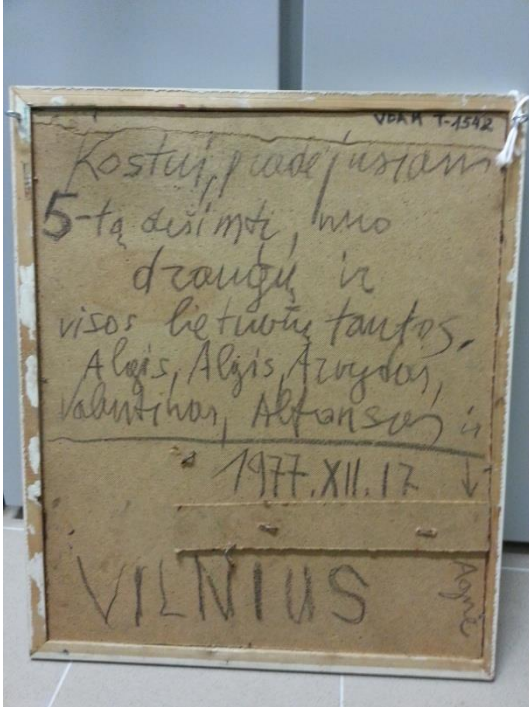 VDAM T-1542
Kostui, pradėjusiam
5-tą dešimtį, nuo
draugų ir
visos lietuvių tautos.
Algis, Algis, Arvydas,
Valentinas, Alfonsas ir
1977.XII.17
Agnė
VILNIUS